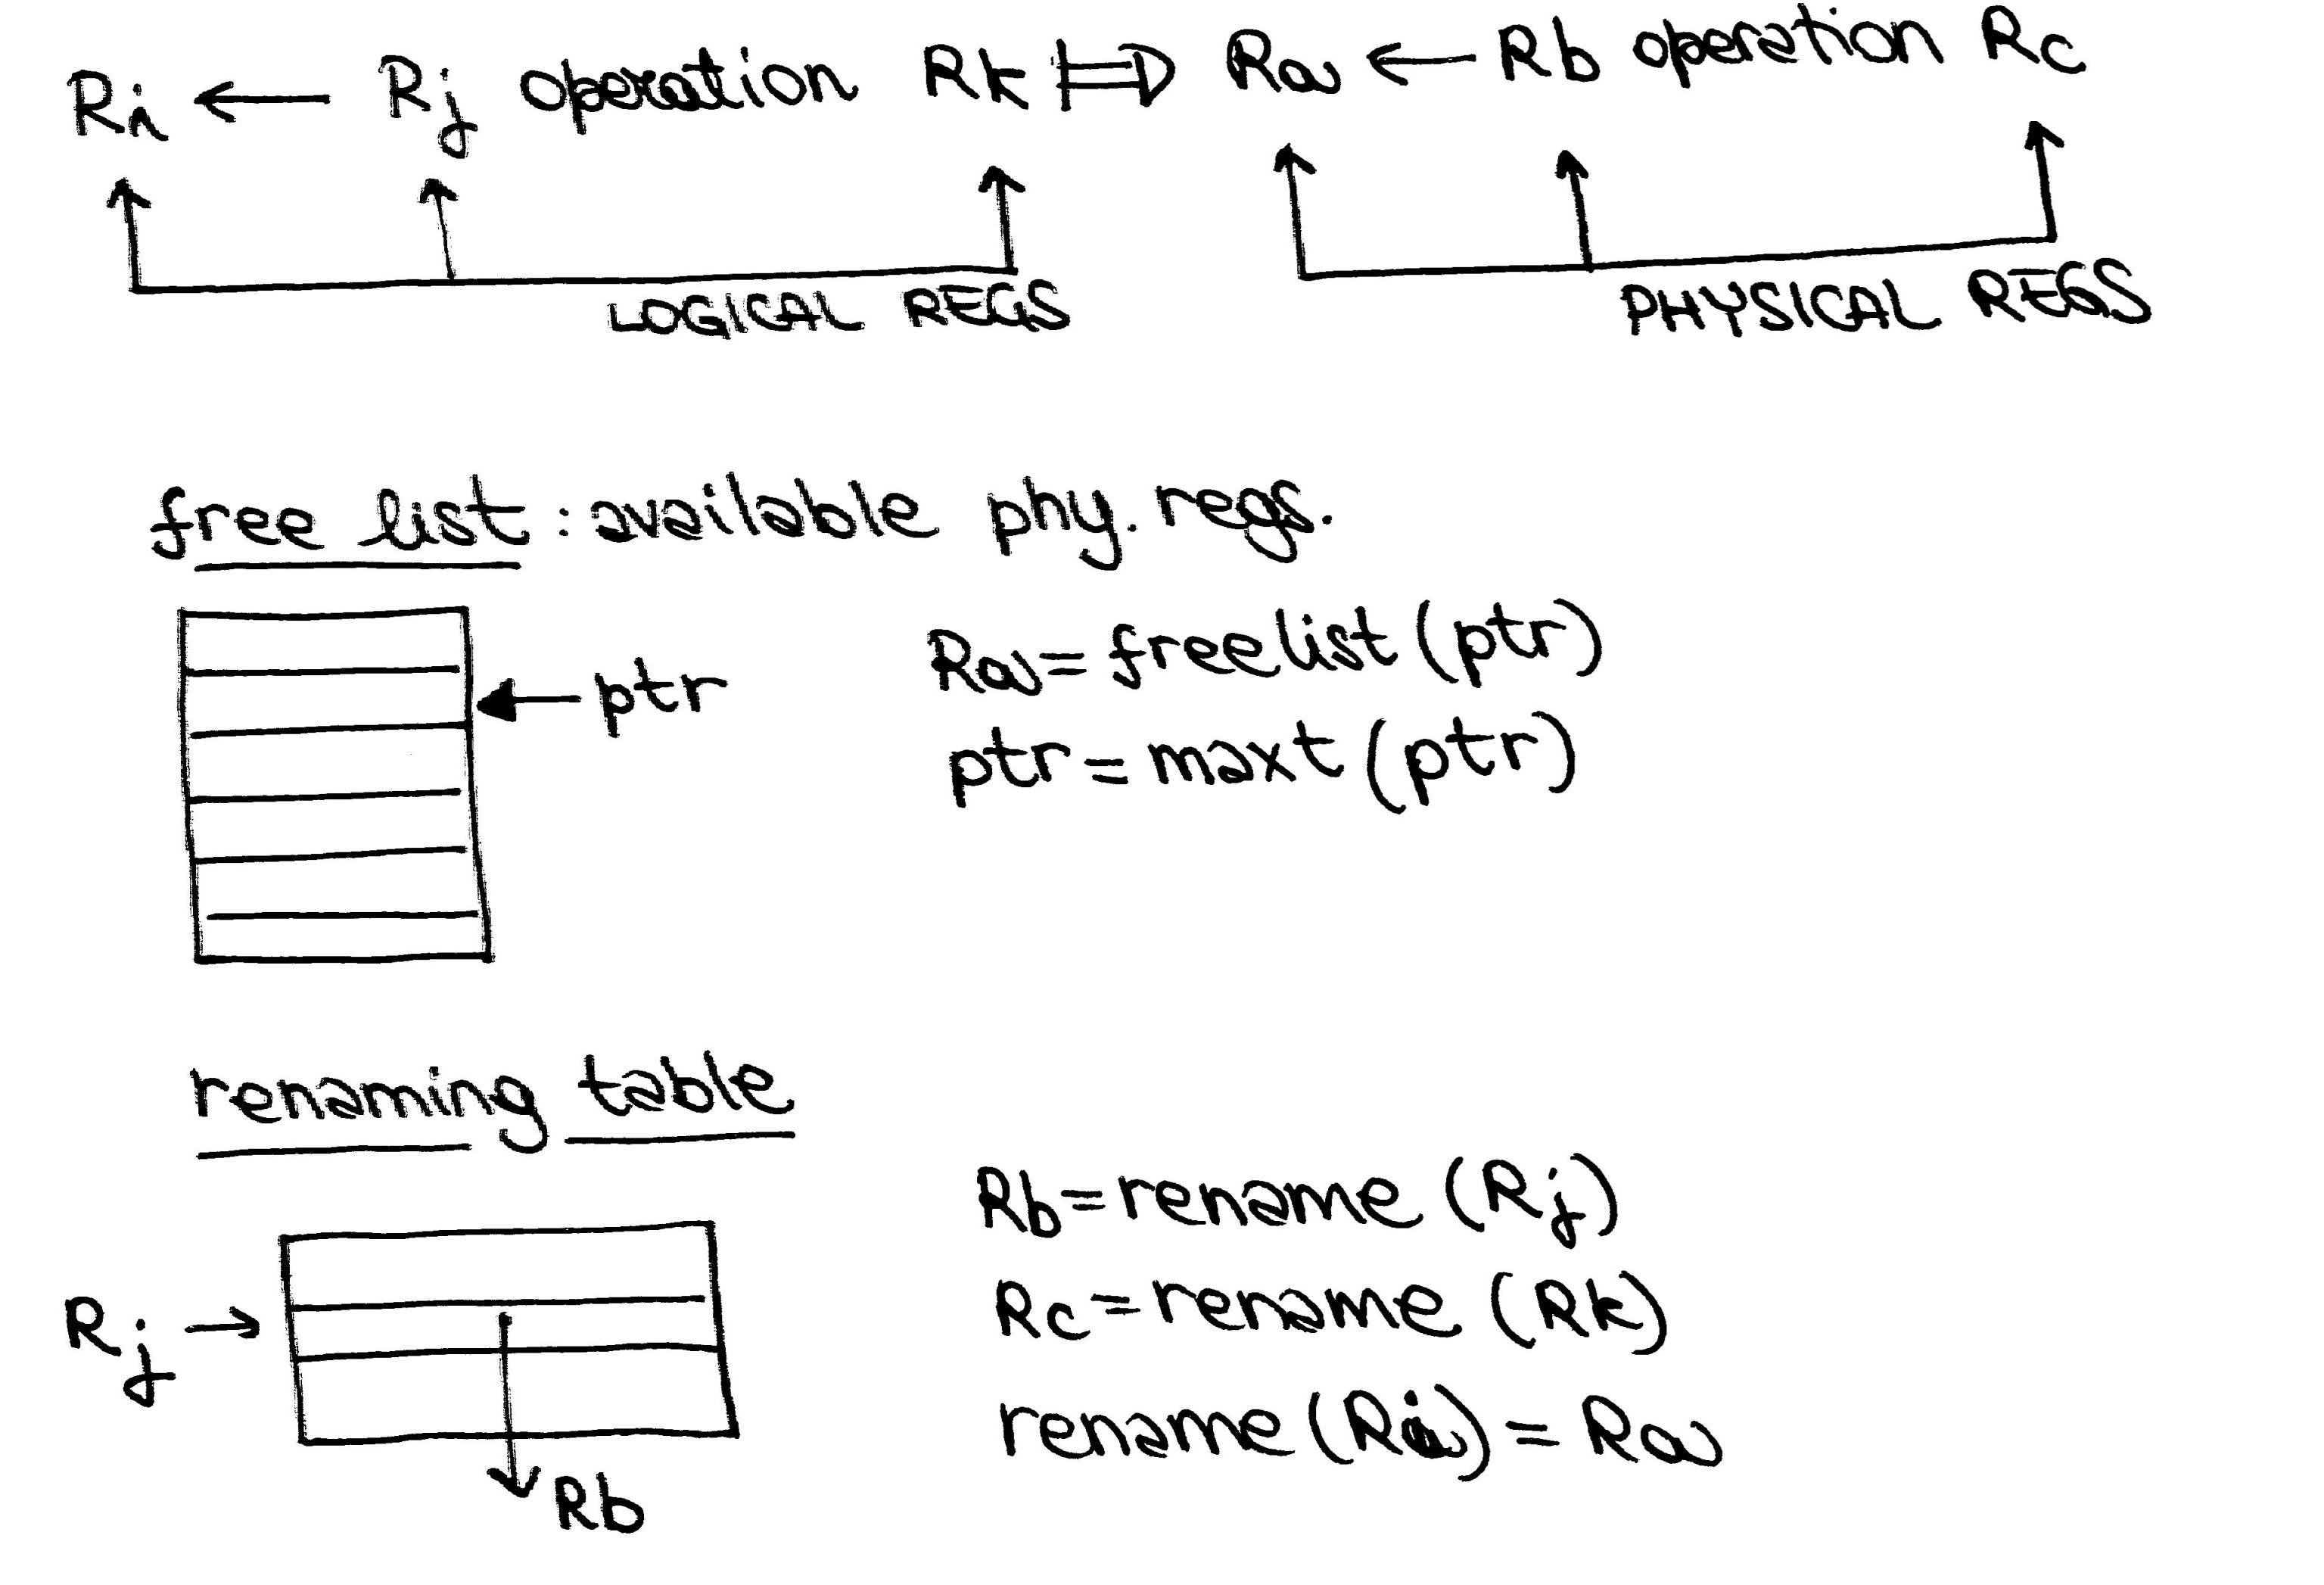 Ri ← Rj operation Rk ⟹ Ra ← Rb operation Rc
LOGICAL REGS
PHYSICAL REGS
free list : available phy. regs.
ptr
Ra = freelist (ptr)
ptr = maxt (ptr)
renaming table
Rj →
Rb
Rb = rename (Rj)
Rc = rename (Rk)
rename (Ri) = Ra